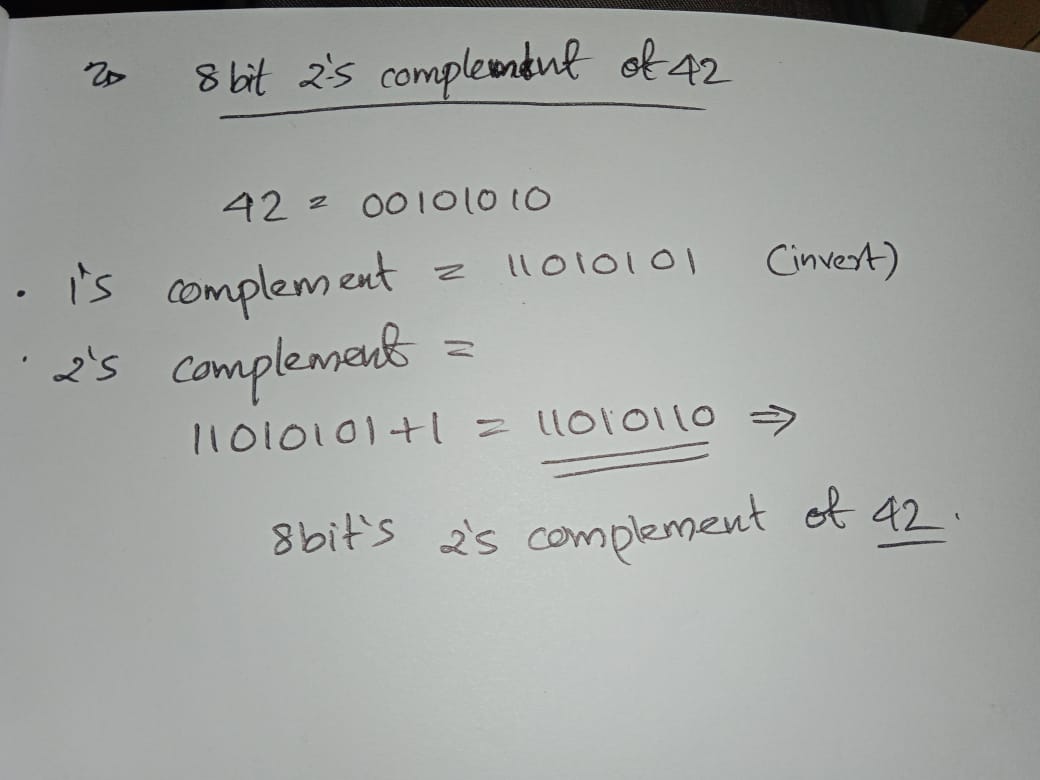 2) 8 bit 2's complement of 42
42 = 00101010
. 1's complement = 11010101 (invert)
. 2's complement =
11010101+1 = 11010110 ⇒
8bit's 2's complement of 42.